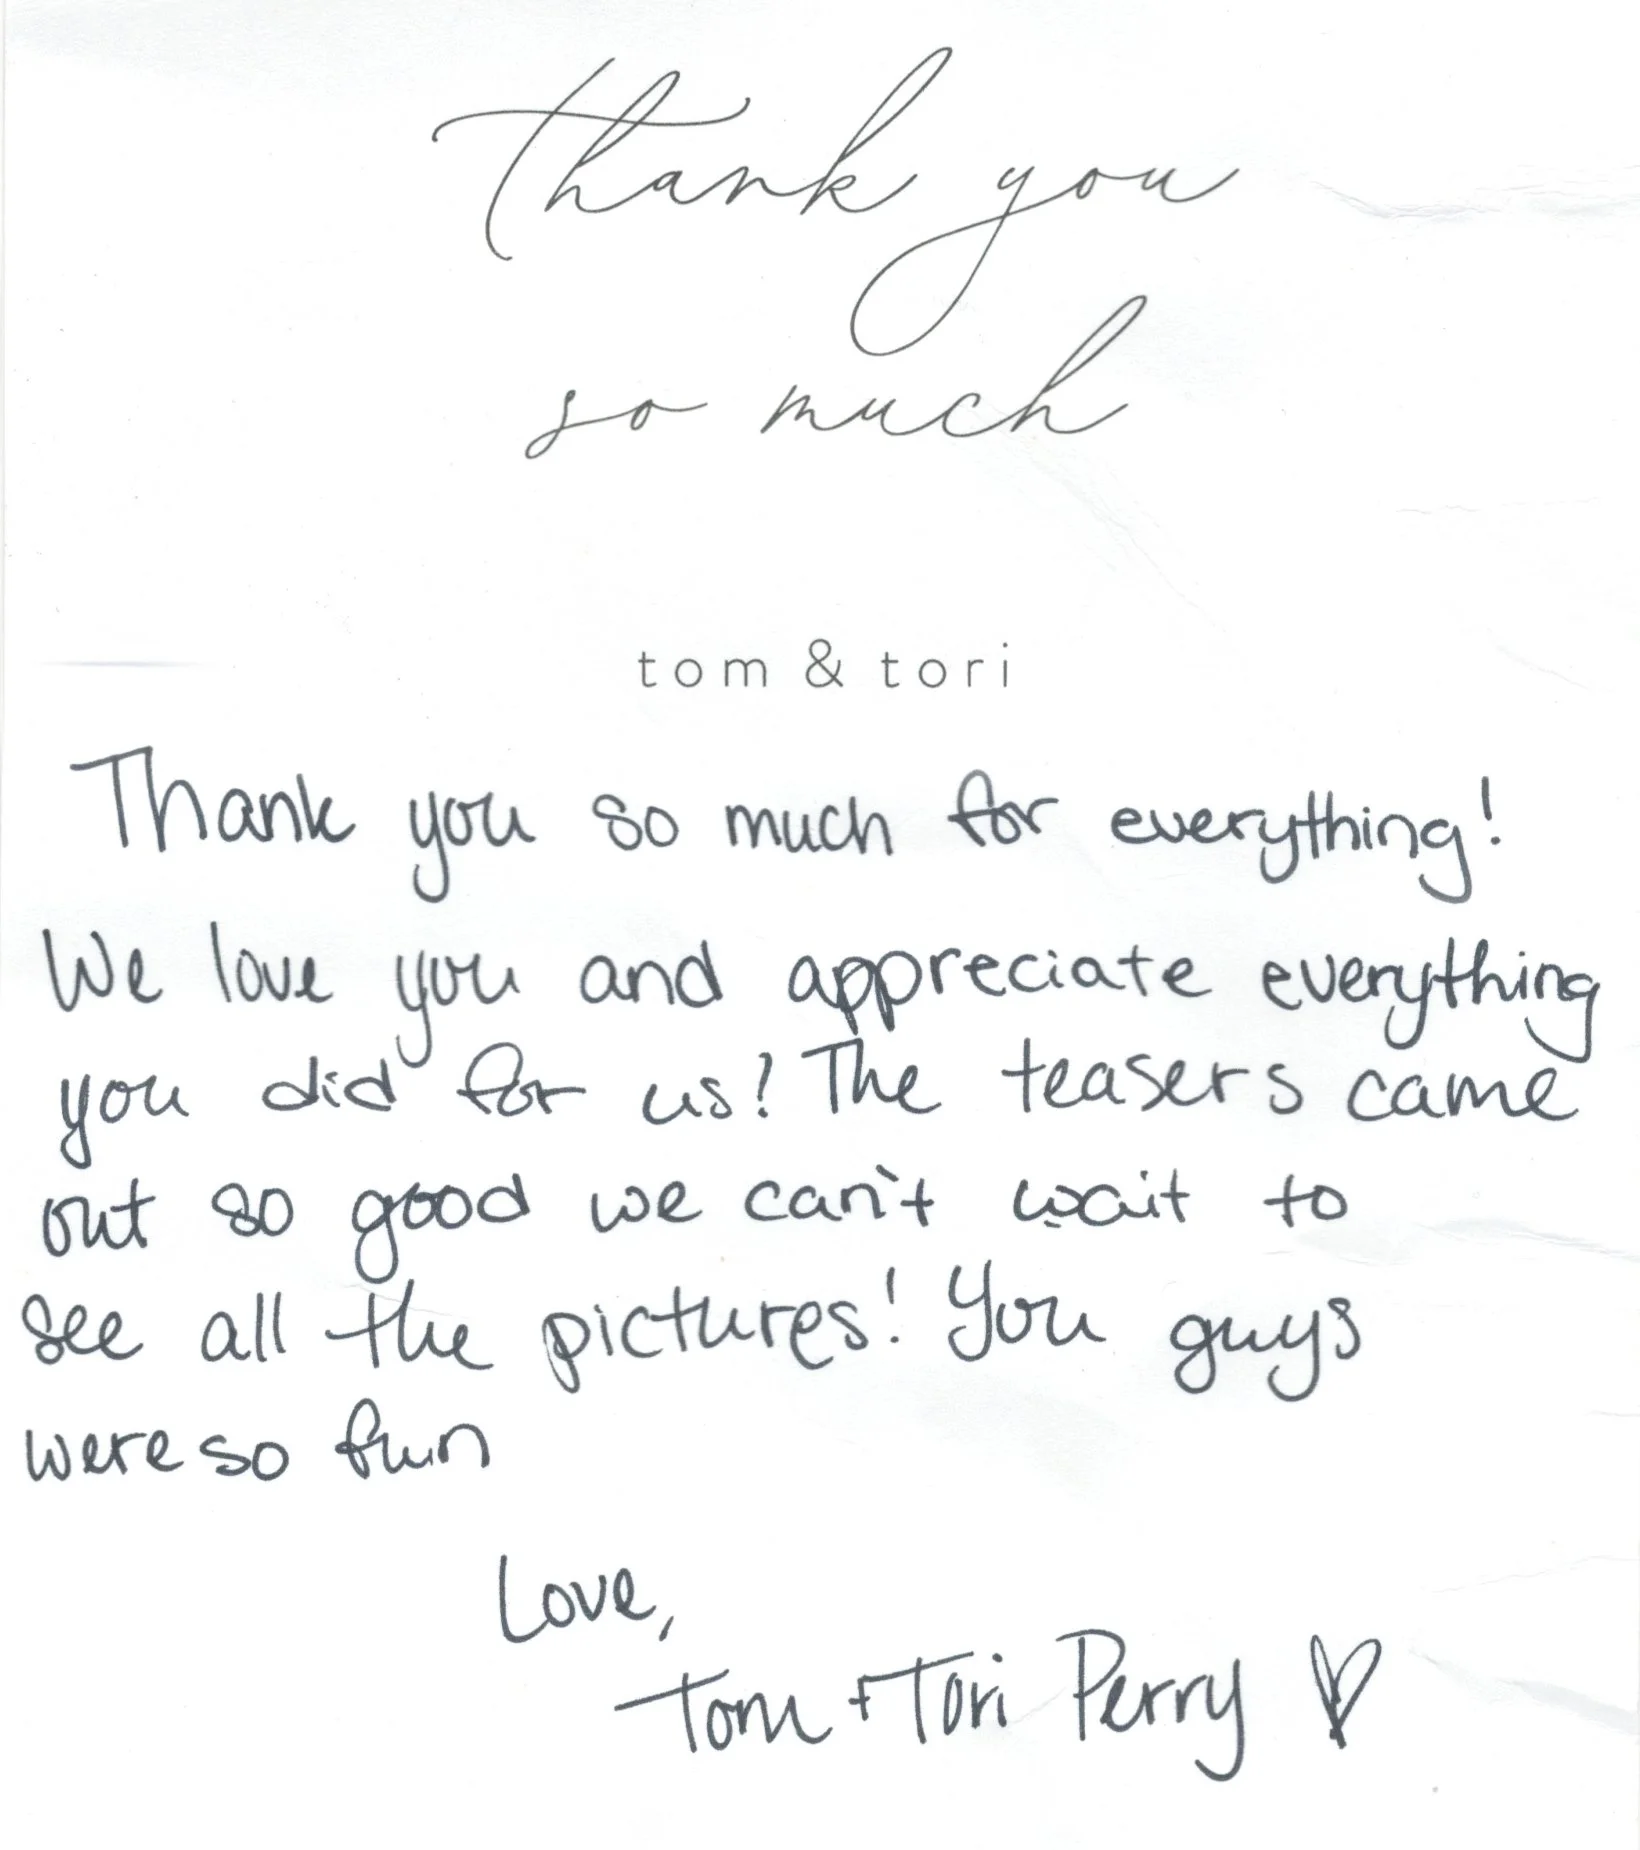 thank you
so much
tom & tori
Thank you so much for everything!
We love you and appreciate everything
you did for us! The teasers came
out so good we can't wait to
see all the pictures! You guys
were so fun
Love,
Tom + Tori Perry ♡